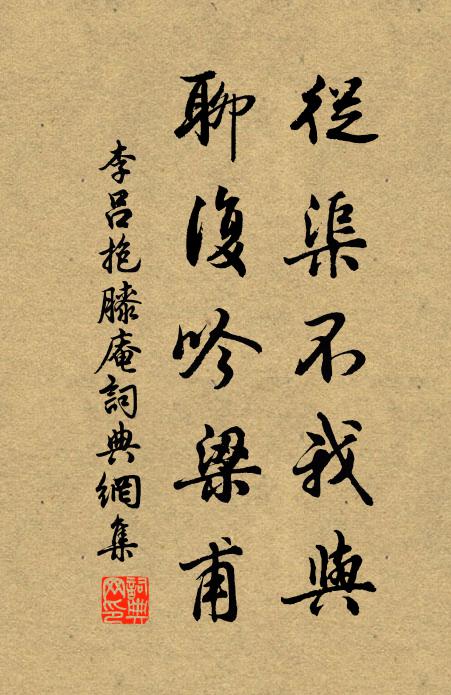 從渠不我與
聊復吟梁甫
李呂抱膝庵詞典網集
詞典网印